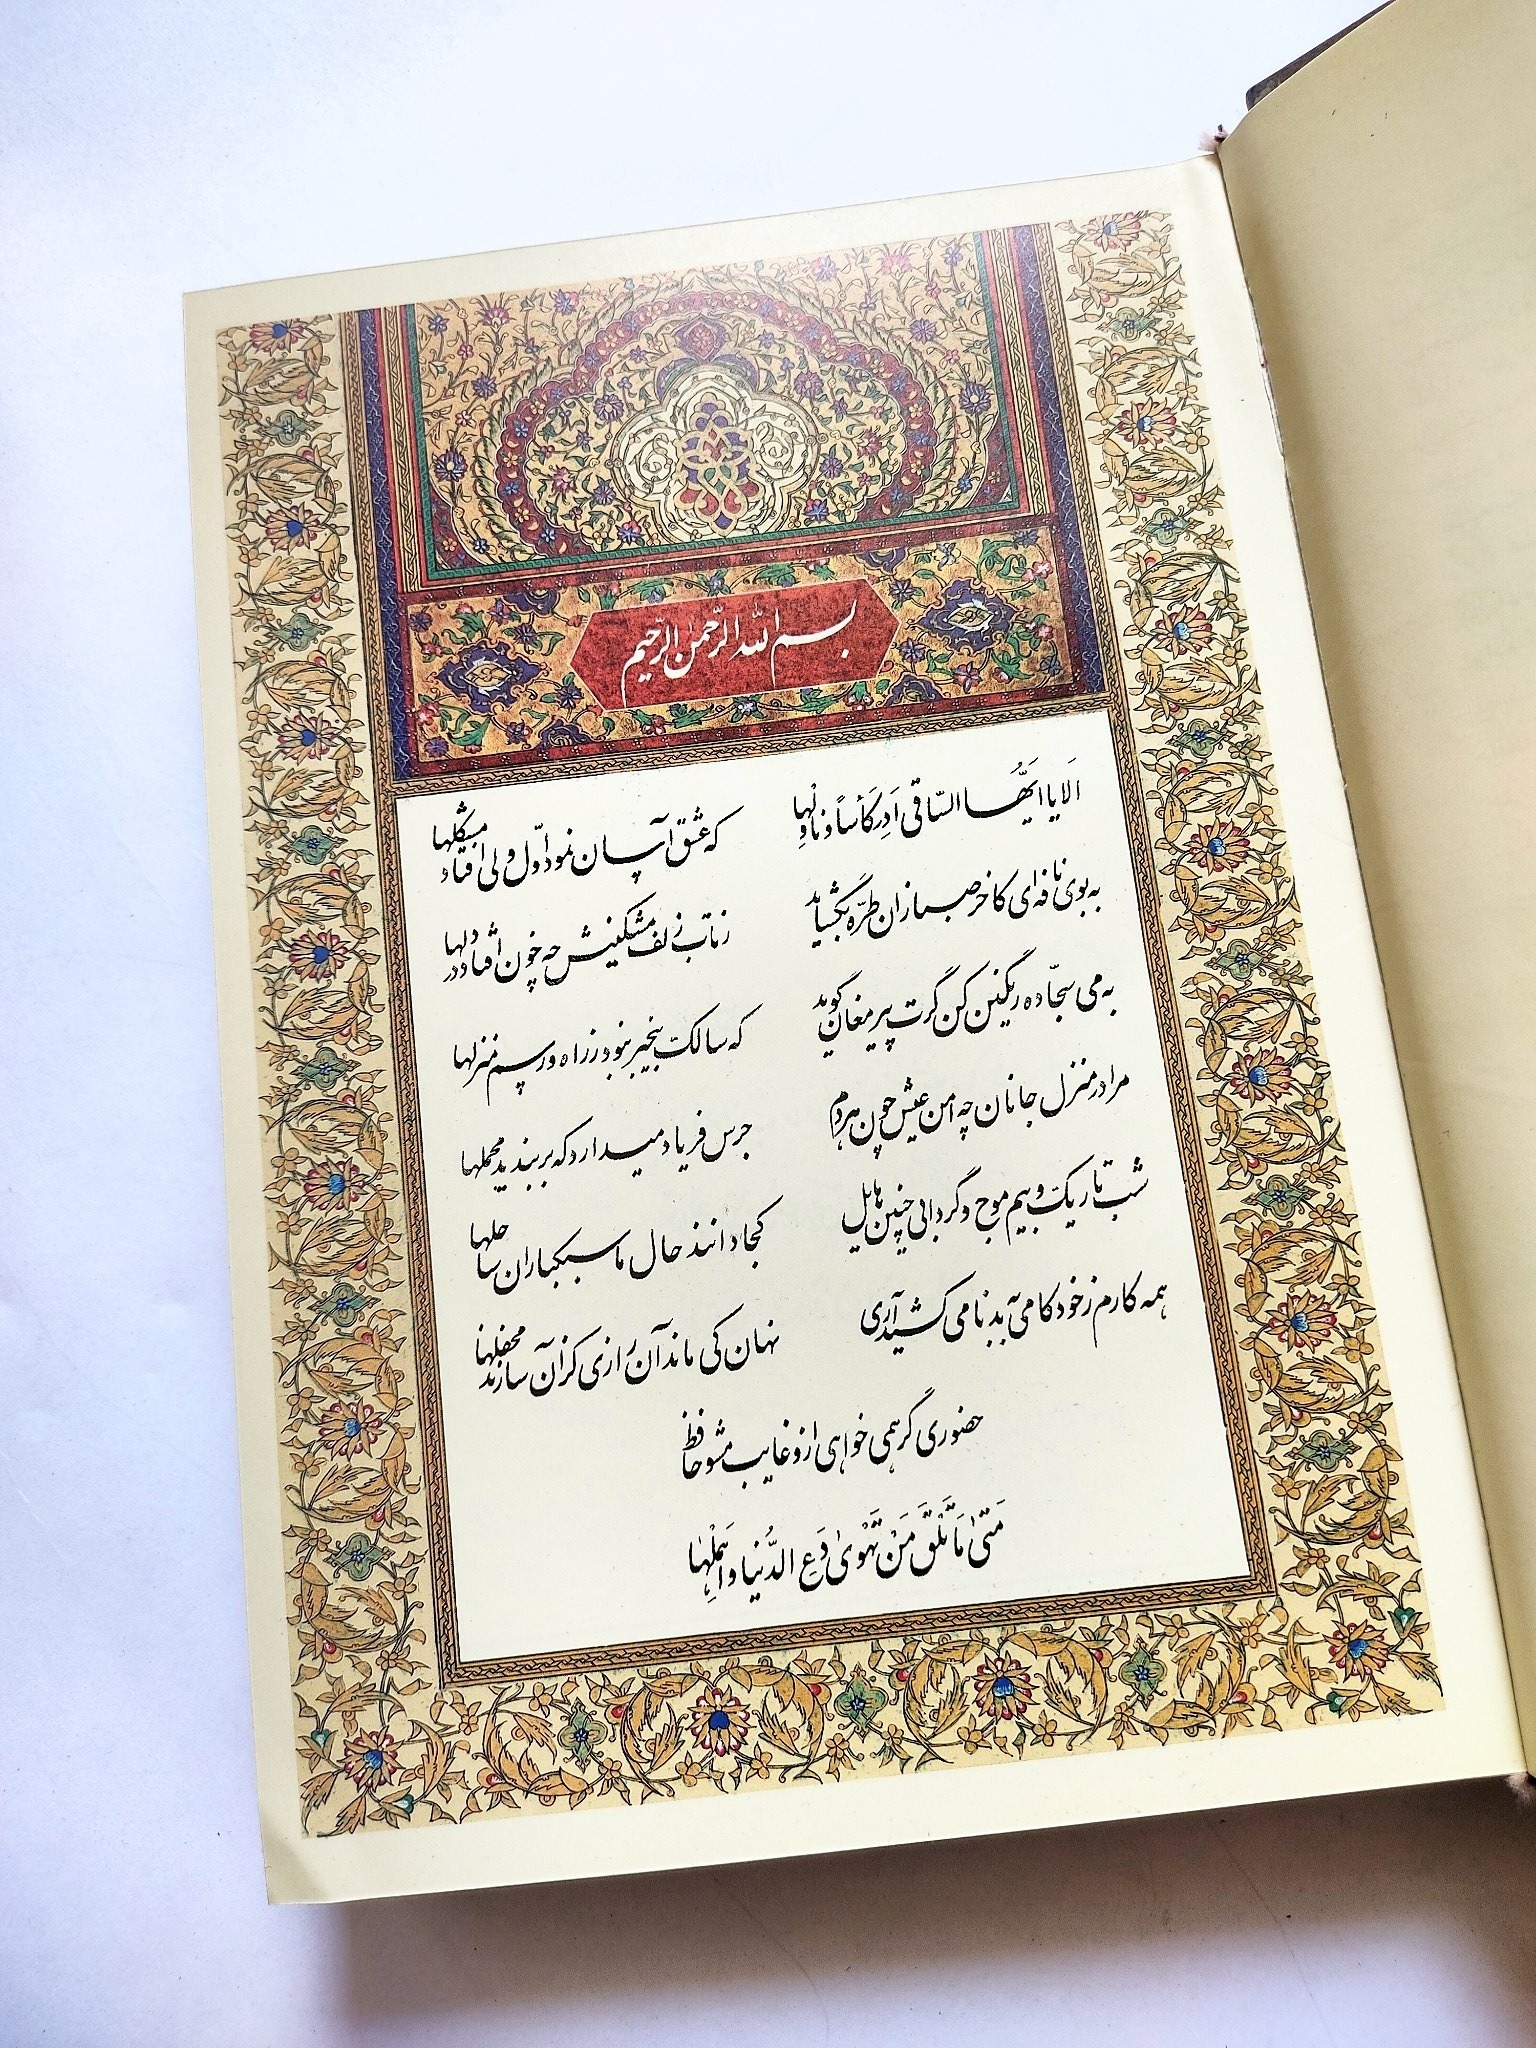 بسم الله الرّحمن الرّحیم
اَلا یا اَیُّهَا السّاقی اَدِر کَأساً وَ ناوِلْها
که عشق آسان نمود اوّل ولی افتاد مشکلها
به بوی نافه‌ای کاخر صبا زان طرّه بگشاید
ز تاب زلف مشکینش چه خون افتاد در دلها
به می سجّاده رنگین کن گرت پیر مغان گوید
که سالک بیخبر نبود ز راه و رسم منزلها
مرا در منزل جانان چه امن عیش چون هر دم
جرس فریاد میدارد که بر بندید محملها
شب تاریک و بیم موج و گردابی چنین هایل
کجا دانند حال ما سبکباران ساحلها
همه کارم ز خود کامی به بدنامی کشید آری
نهان کی ماند آن رازی کزآن سازند محفلها
حضوری گر همی خواهی ازو غایب مشو حافظ
مَتیٰ ماتَلْقَ مَنْ تَهْویٰ دَعِ الدُّنیا وَ اَهْمِلْهٰا